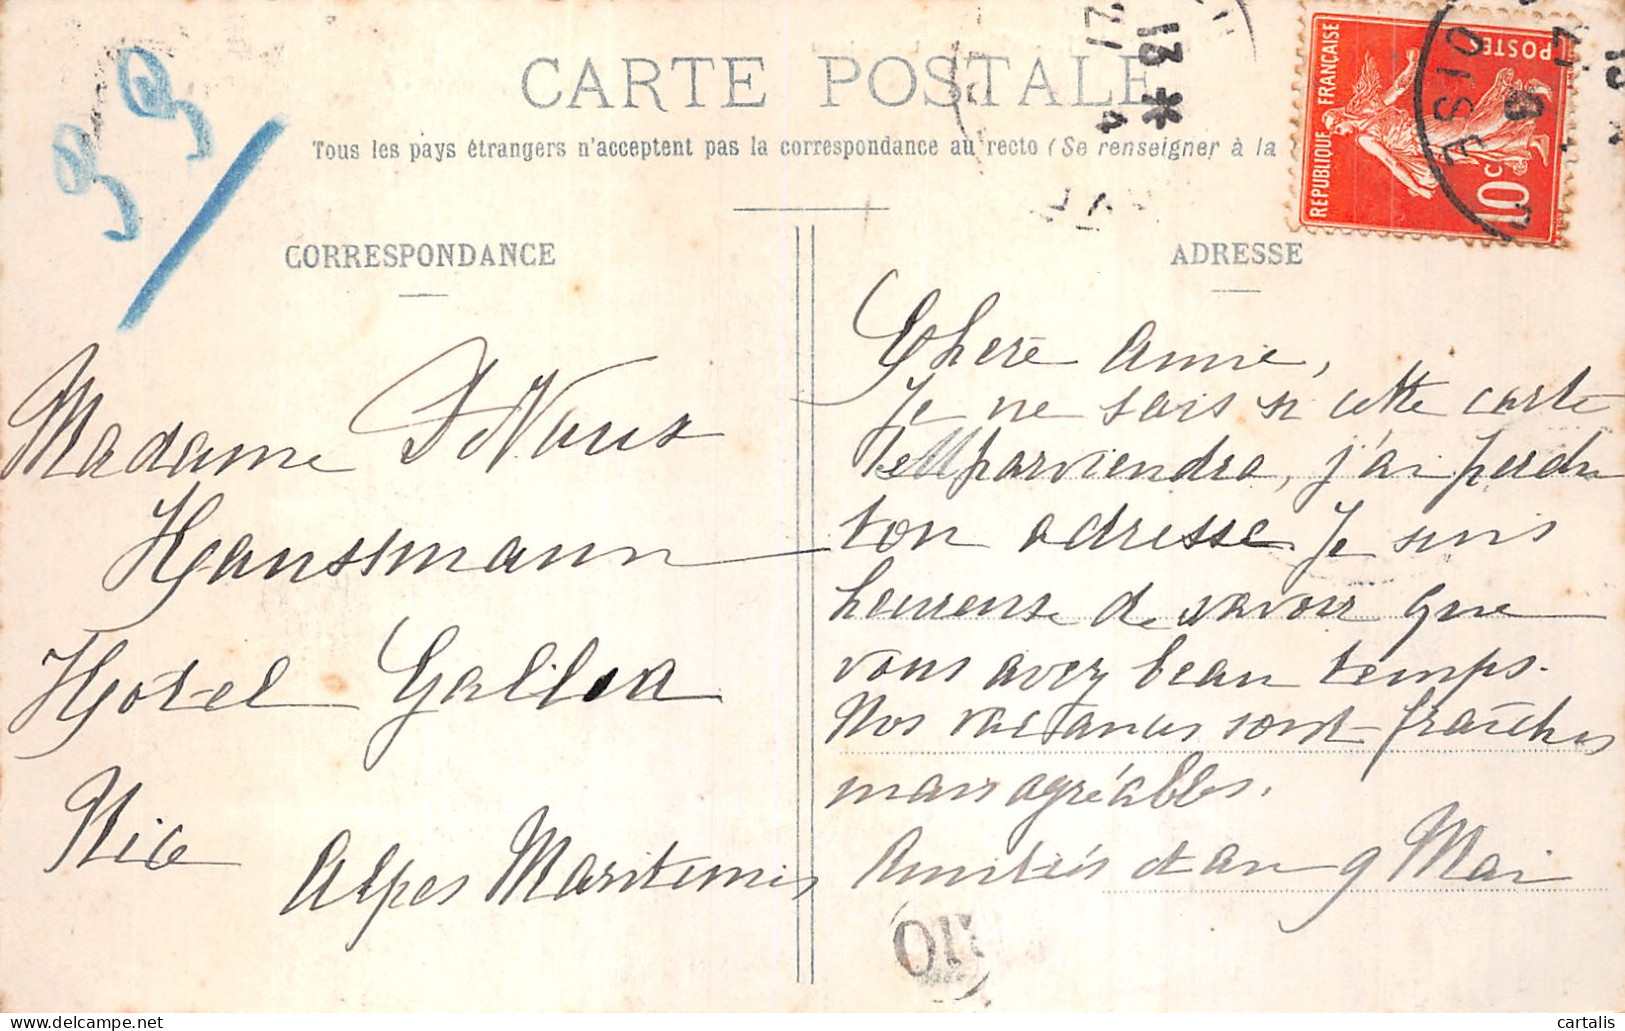 CARTE POSTALE
Tous les pays étrangers n'acceptent pas la correspondance au recto (Se renseigner à la
CORRESPONDANCE
ADRESSE
REPUBLIQUE FRANÇAISE
POSTES
10 c
OISE
13 *
Madame
Haussmann
Hotel Gallia
Nice
Alpes Maritimes
Chere Annie,
Je ne sais si cette carte
te parviendra, j'ai perdu
ton adresse. Je suis
heureuse de savoir que
vous avez beau temps.
Nos vacances sont fraîches
mais agréables.
Amitiés 9 Mai
OR
cartalis